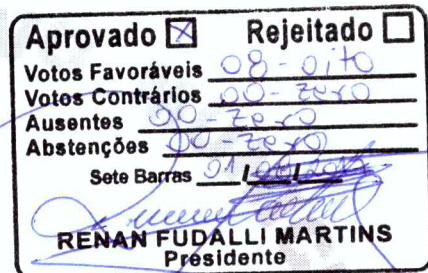 Aprovado ☒ Rejeitado ☐
Votos Favoráveis 08 - oito
Votos Contrários 00 - zero
Ausentes 00 - zero
Abstenções 00 - zero
Sete Barras 01 / /
RENAN FUDALLI MARTINS
Presidente